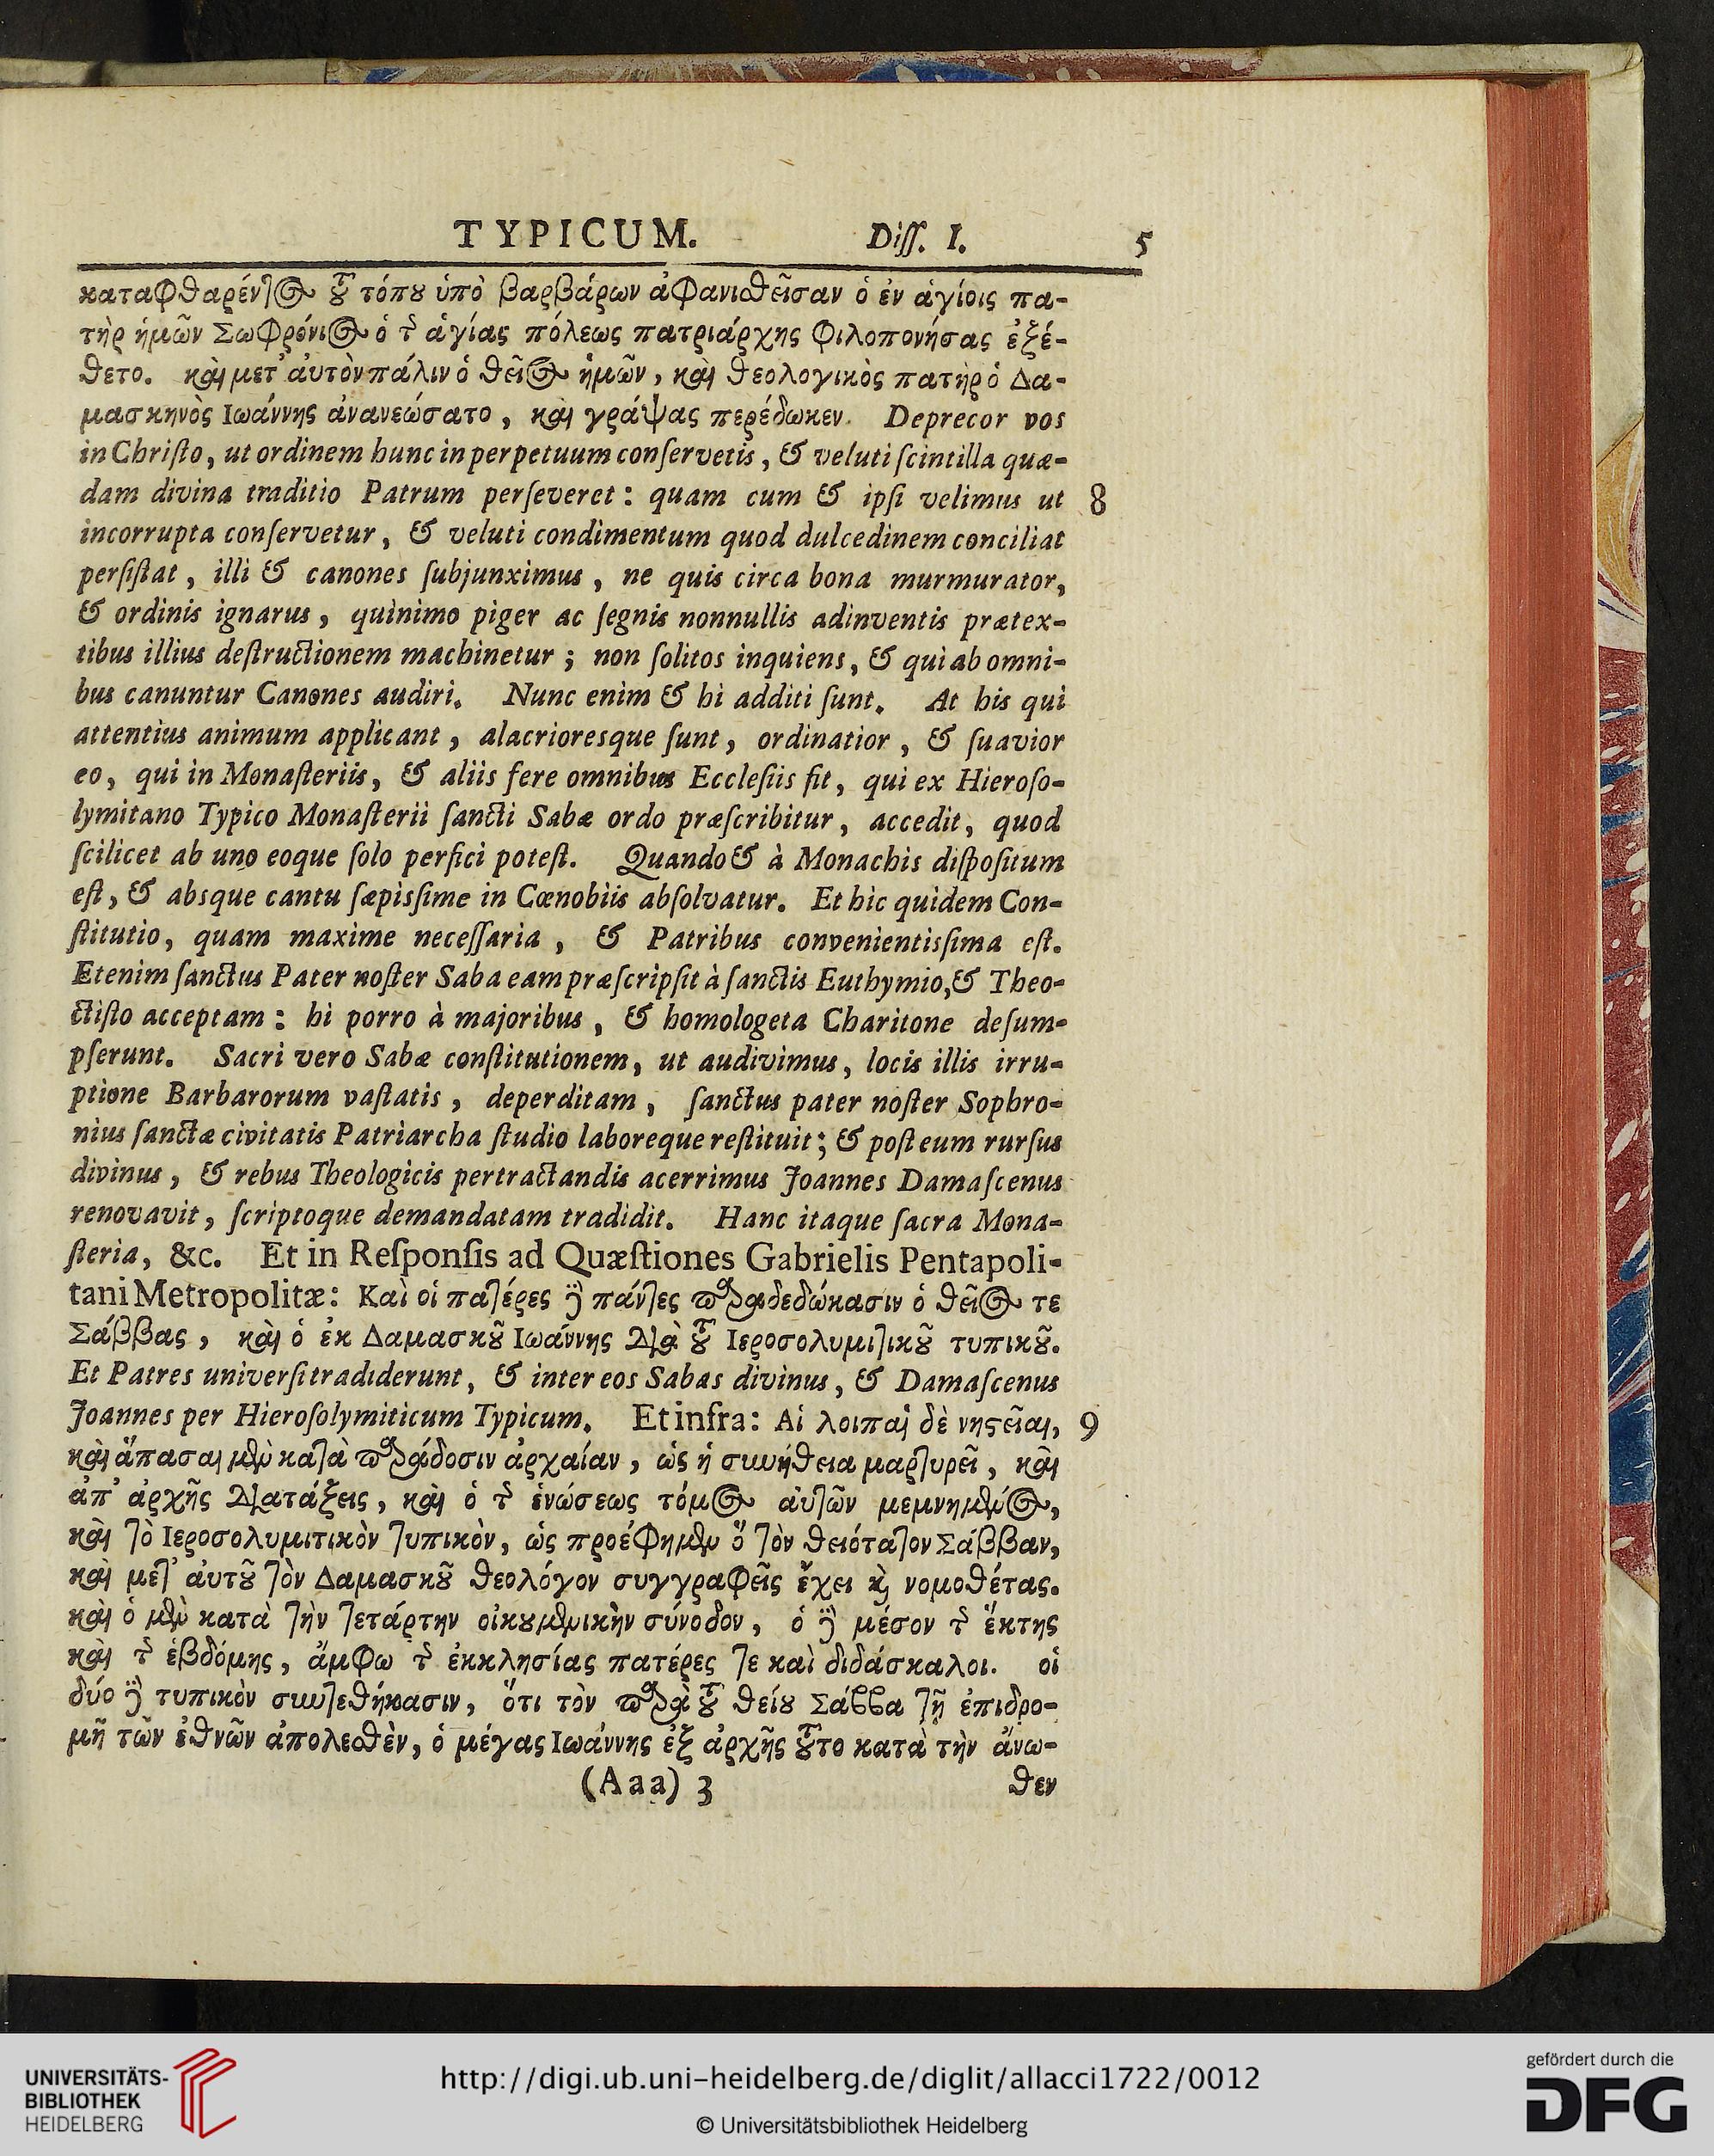 TYPICUM. Diſſ. I. 5
καταφθαρέντος τοῦ τόπου ὑπὸ βαρβάρων ἀφανισθεῖσαν ὁ ἐν ἁγίοις πα-
τὴρ ἡμῶν Σωφρόνιος ὁ τῆς ἁγίας πόλεως πατριάρχης φιλοπονήσας ἐξέ-
θετο. καὶ μετ' ἀυτὸν πάλιν ὁ θεῖος ἡμῶν, καὶ θεολογικὸς πατὴρ ὁ Δα-
μασκηνὸς Ιωάννης ἀνανεώσατο, καὶ γράψας περέδωκεν. Deprecor vos
in Chriſto, ut ordinem hunc in perpetuum conſervetis, & veluti ſcintilla quæ-
dam divina traditio Patrum perſeveret: quam cum & ipſi velimus ut 8
incorrupta conſervetur, & veluti condimentum quod dulcedinem conciliat
perſiſtat, illi & canones ſubjunximus, ne quis circa bona murmurator,
& ordinis ignarus, quinimo piger ac ſegnis nonnullis adinventis prætex-
tibus illius deſtructionem machinetur; non ſolitos inquiens, & qui ab omni-
bus canuntur Canones audiri. Nunc enim & hi additi ſunt. At his qui
attentius animum applicant, alacrioresque ſunt, ordinatior, & ſuavior
eo, qui in Monaſteriis, & aliis fere omnibus Eccleſiis fit, qui ex Hieroſo-
lymitano Typico Monaſterii ſancti Sabæ ordo præſcribitur, accedit, quod
ſcilicet ab uno eoque ſolo perfici poteſt. Quando & à Monachis diſpoſitum
eſt, & absque cantu ſæpisſime in Cœnobiis abſolvatur. Et hic quidem Con-
ſtitutio, quam maxime neceſſaria, & Patribus convenientisſima eſt.
Etenim ſanctus Pater noſter Saba eam præſcripſit à ſanctis Euthymio, & Theo-
ctiſto acceptam: hi porro à majoribus, & homologeta Charitone deſum-
pſerunt. Sacri vero Sabæ conſtitutionem, ut audivimus, locis illis irru-
ptione Barbarorum vaſtatis, deperditam, ſanctus pater noſter Sophro-
nius ſanctæ civitatis Patriarcha ſtudio laboreque reſtituit; & poſt eum rurſus
divinus, & rebus Theologicis pertractandis acerrimus Joannes Damaſcenus
renovavit, ſcriptoque demandatam tradidit. Hanc itaque ſacra Mona-
ſteria, &c. Et in Reſponſis ad Quæſtiones Gabrielis Pentapoli-
tani Metropolitæ: Καὶ οἱ πατέρες δὲ πάντες παραδεδώκασιν ὁ θεῖος τε
Σάββας, καὶ ὁ ἐκ Δαμασκοῦ Ιωάννης διὰ τοῦ Ιεροσολυμιτικοῦ τυπικοῦ.
Et Patres univerſi tradiderunt, & inter eos Sabas divinus, & Damaſcenus
Joannes per Hieroſolymiticum Typicum. Et infra: Αἱ λοιπαὶ δὲ νηστεῖαι, 9
καὶ ἅπασαι μὲν κατὰ παράδοσιν ἀρχαίαν, ὡς ἡ συνήθεια μαρτυρεῖ, καὶ
ἀπ' ἀρχῆς διατάξεις, καὶ ὁ τῆς ἑνώσεως τόμος ἀυτῶν μεμνημένος,
καὶ τὸ Ιεροσολυμιτικὸν τυπικὸν, ὡς προέφημεν ὃ τὸν θειότατον Σάββαν,
καὶ μετ' ἀυτοῦ τὸν Δαμασκοῦ θεολόγον συγγραφεῖς ἔχει καὶ νομοθέτας.
καὶ ὁ μὲν κατὰ τὴν τετάρτην οἰκουμενικὴν σύνοδον, ὁ δὲ μέσον τῆς ἕκτης
καὶ τῆς ἑβδόμης, ἄμφω τῆς ἐκκλησίας πατέρες τε καὶ διδάσκαλοι. οἱ
δύο δὲ τυπικὸν συντεθήκασιν, ὅτι τὸν παρὰ τοῦ θείου Σάββα τῇ ἐπιδρο-
μῇ τῶν ἐθνῶν ἀπολεσθὲν, ὁ μέγας Ιωάννης ἐξ ἀρχῆς τοῦτο κατὰ τὴν ἄνω-
(Aaa) 3 θεν
UNIVERSITÄTS-
BIBLIOTHEK
HEIDELBERG
http://digi.ub.uni-heidelberg.de/diglit/allacci1722/0012
© Universitätsbibliothek Heidelberg
gefördert durch die
DFG